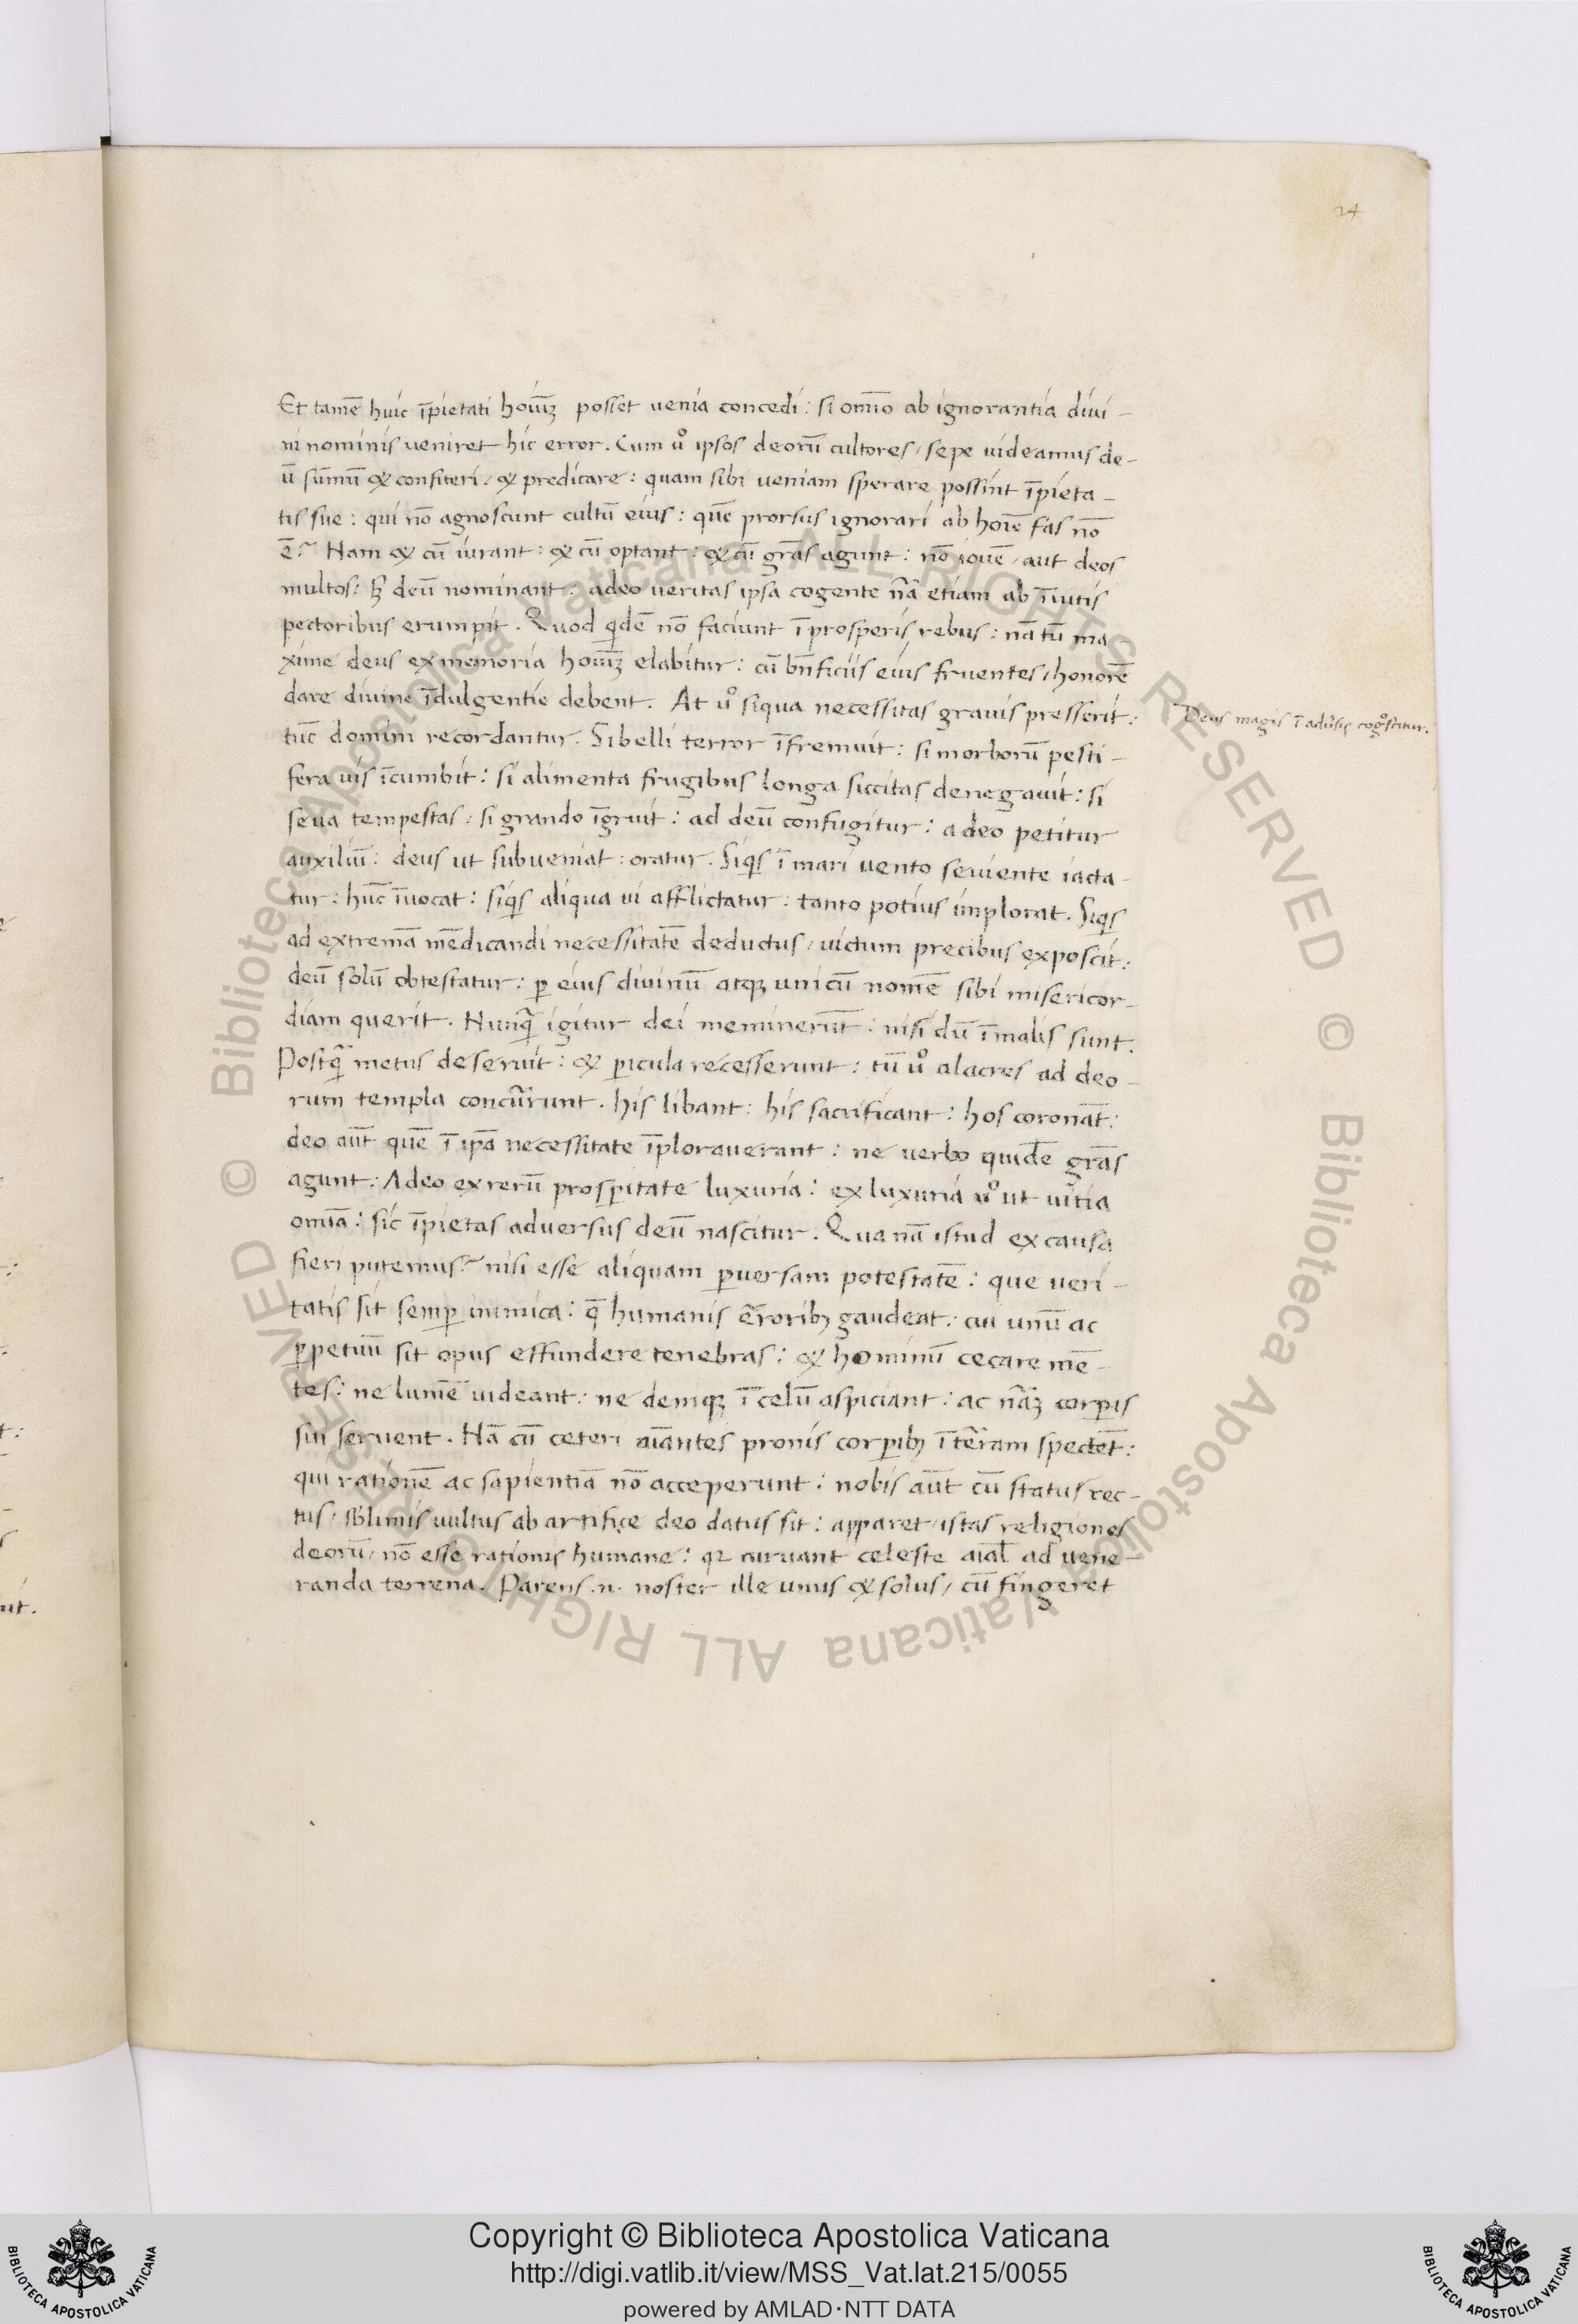 24
Et tamē huic īpietati hoīuꝫ posset uenia concedi: si om̄io ab ignorantia diui-
ni nominis ueniret hic error. Cum uͦ ipsos deorū cultores, sepe uideamus de-
ū sūmū & confiteri, & predicare: quam sibi ueniam sperare possint īpieta-
tis sue: qui nō agnoscunt cultū eius: quē prorsus ignorari ab hoīe fas nō
ē? Nam & cū iurant: & cū optant: & cū grās agunt: nō iouē, aut deos
multos: sꝫ deū nominant: adeo ueritas ipsa cogente nā etiam ab īuitis
pectoribus erumpit. Quod qdē nō faciunt ī prosperis rebus: nā tū ma
xime deus ex memoria hoīuꝫ elabitur: cū bn̄ficiis eius fruentes, honorē
dare diuine īdulgentie debent. At uͦ siqua necessitas grauis presserit:
Deus magis ī aduersis cogͦscitur.
tūc domini recordantur. Si belli terror īfremuit: si morborū pesti-
fera uis īcumbit: si alimenta frugibus longa siccitas denegauit: si
seua tempestas, si grando īgruit: ad deū confugitur: a deo petitur
auxiliū: deus ut subueniat: oratur. Siqs ī mari uento seuiente iacta-
tur: hūc īuocat: siqs aliqua ui afflictatur: tanto potius implorat. Siqs
ad extremā mēdicandi necessitatē deductus, uictum precibus exposcit:
deū solū obtestatur: ꝑ eius diuinū atqꝫ unicū nomē sibi misericor-
diam querit. Nunq̄ igitur dei meminerūt: nisi dū ī malis sunt.
Postq̄ metus deseruit: & ꝑicula recesserunt: tū uͦ alacres ad deo-
rum templa concūrunt. his libant: his sacrificant: hos coronāt:
deo aūt quē ī ipā necessitate īplorauerant: ne uerbo quidē grās
agunt: Adeo ex rerū prosꝑitate luxuria: ex luxuria uͦ ut uitia
omīa: sic īpietas aduersus deū nascitur. Qua nā istud ex causa
fieri putemus? nisi esse aliquam ꝑuersam potestatē: que ueri-
tatis sit semꝑ inimica: q̄ humanis ērroribꝫ gaudeat: cui unū ac
ꝑpetuū sit opus effundere tenebras: & hominū cecare mē-
tes: ne lumē uideant: ne deniqꝫ ī celū aspiciant: ac nāꝫ corꝑis
sui seruent. Nā cū ceteri aīantes pronis corꝑibꝫ ī tēram spectēt:
qui rationē ac sapientiā nō acceperunt: nobis aūt cū status rec-
tus, sb̄limis uultus ab artifice deo datus sit: apparet, istas religiones
deorū, nō esse rationis humane: qꝛ curuant celeste aīal ad uene-
randa terrena. Parens .n. noster ille unus & solus, cū fingeret
BIBLIOTECA APOSTOLICA VATICANA
Copyright © Biblioteca Apostolica Vaticana
http://digi.vatlib.it/view/MSS_Vat.lat.215/0055
powered by AMLAD·NTT DATA
BIBLIOTECA APOSTOLICA VATICANA
© Biblioteca Apostolica Vaticana ALL RIGHTS RESERVED © Biblioteca Apostolica Vaticana ALL RIGHTS RESERVED